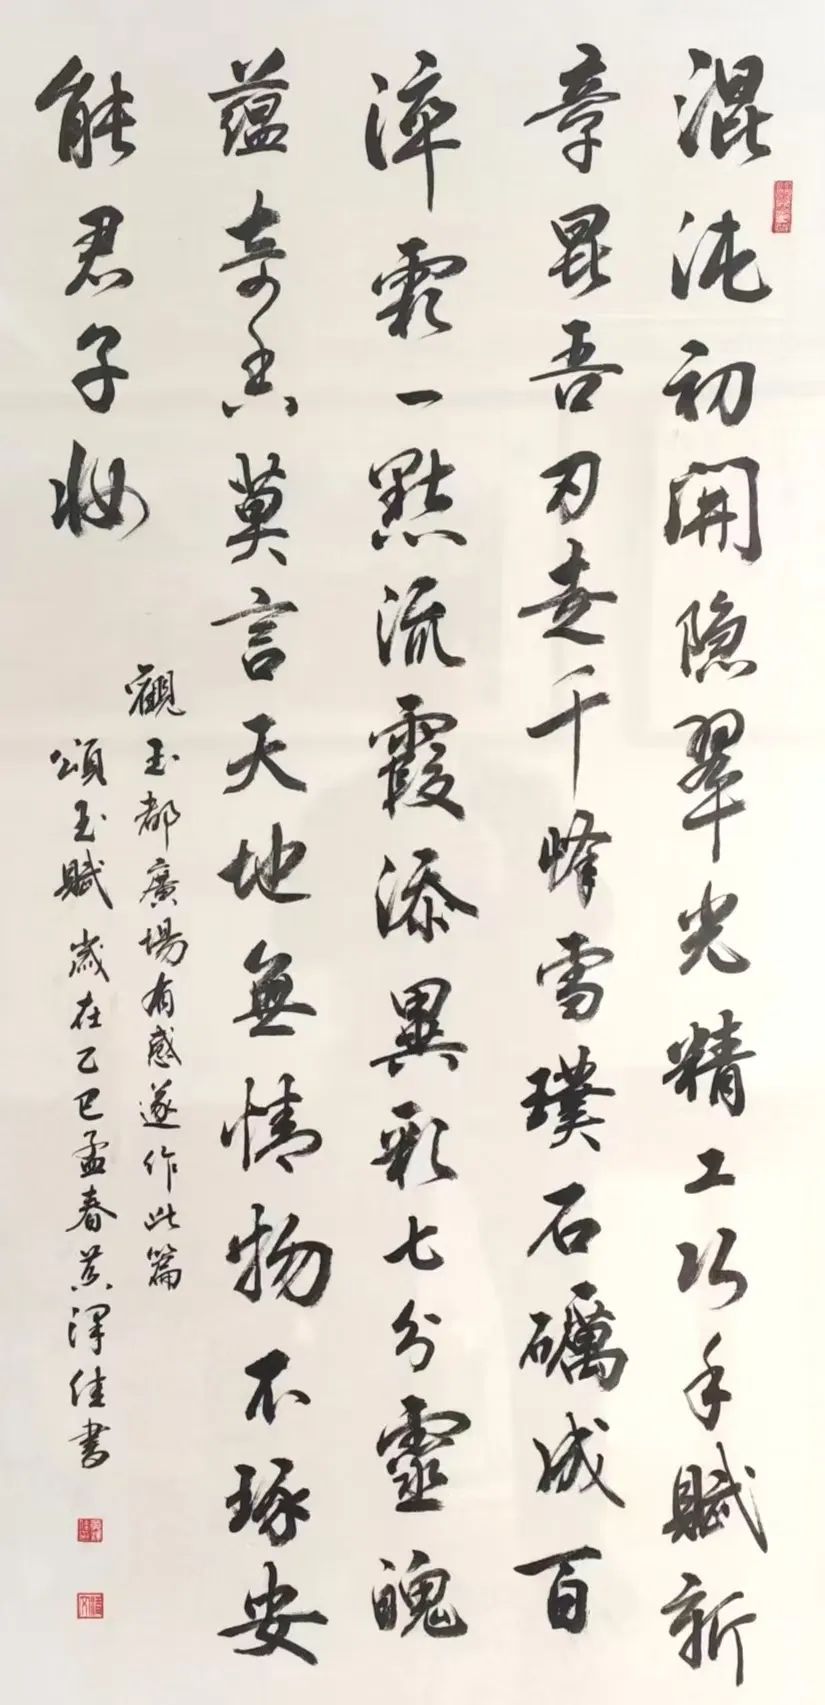 混沌初開隐翠光精工巧手賦新
章昆吾刃走千峰雪璞石礪成百
淬霜一點流霞添異彩七分靈魄
蘊奇香莫言天地無情物不琢安
能君子妝
觀玉都廣場有感遂作此篇
頌玉賦歲在乙巳孟春黄澤佳書